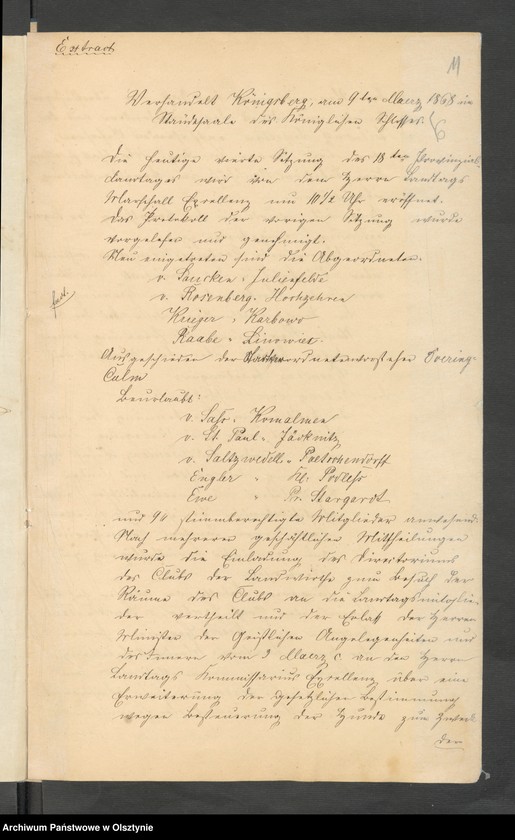 Extract
11
Verhandelt Königsberg, am 9ten Maerz 1868 im
Ständesaale des Königlichen Schlosses.
Die heutige vierte Sitzung des 18ten Provinzial-
Landtages wird von dem Herrn Landtags
Marschall Excellenz um 10 1/2 Uhr eröffnet.
Das Protokoll der vorigen Sitzung wurde
vorgelesen und genehmigt.
Neu eingetreten sind die Abgeordneten.
v. Saucken - Julienfelde
v. Rosenberg - Hochzehren
Krieger - Karbowo
Raabe - Linowiec.
Ausgeschieden der Stadtverordnetenvorsteher
Culm
Beurlaubt:
v. Sass - Komalmen
v. St. Paul - Jäcknitz
v. Saltzwedell - Poetschendorff
Engler - Kl. Podless
Ewe " Pr. Stargardt
und 90 stimmberechtigte Mitglieder anwesend.
Nach mehreren geschäftlichen Mittheilungen
wurde die Einladung des Directoriums
des Clubs der Landwirthe zum Besuch der
Räume des Clubs an die Landtagsmitglie-
der vertheilt und der Erlaß der Herren
Minister der Geistlichen Angelegenheiten und
des Innern vom 2 Maerz c. an den Herrn
Landtags Kommissarius Excellenz über eine
Erweiterung der gesetzlichen Bestimmung
wegen Besteuerung der Hunde zum Zweck
der
Archiwum Państwowe w Olsztynie